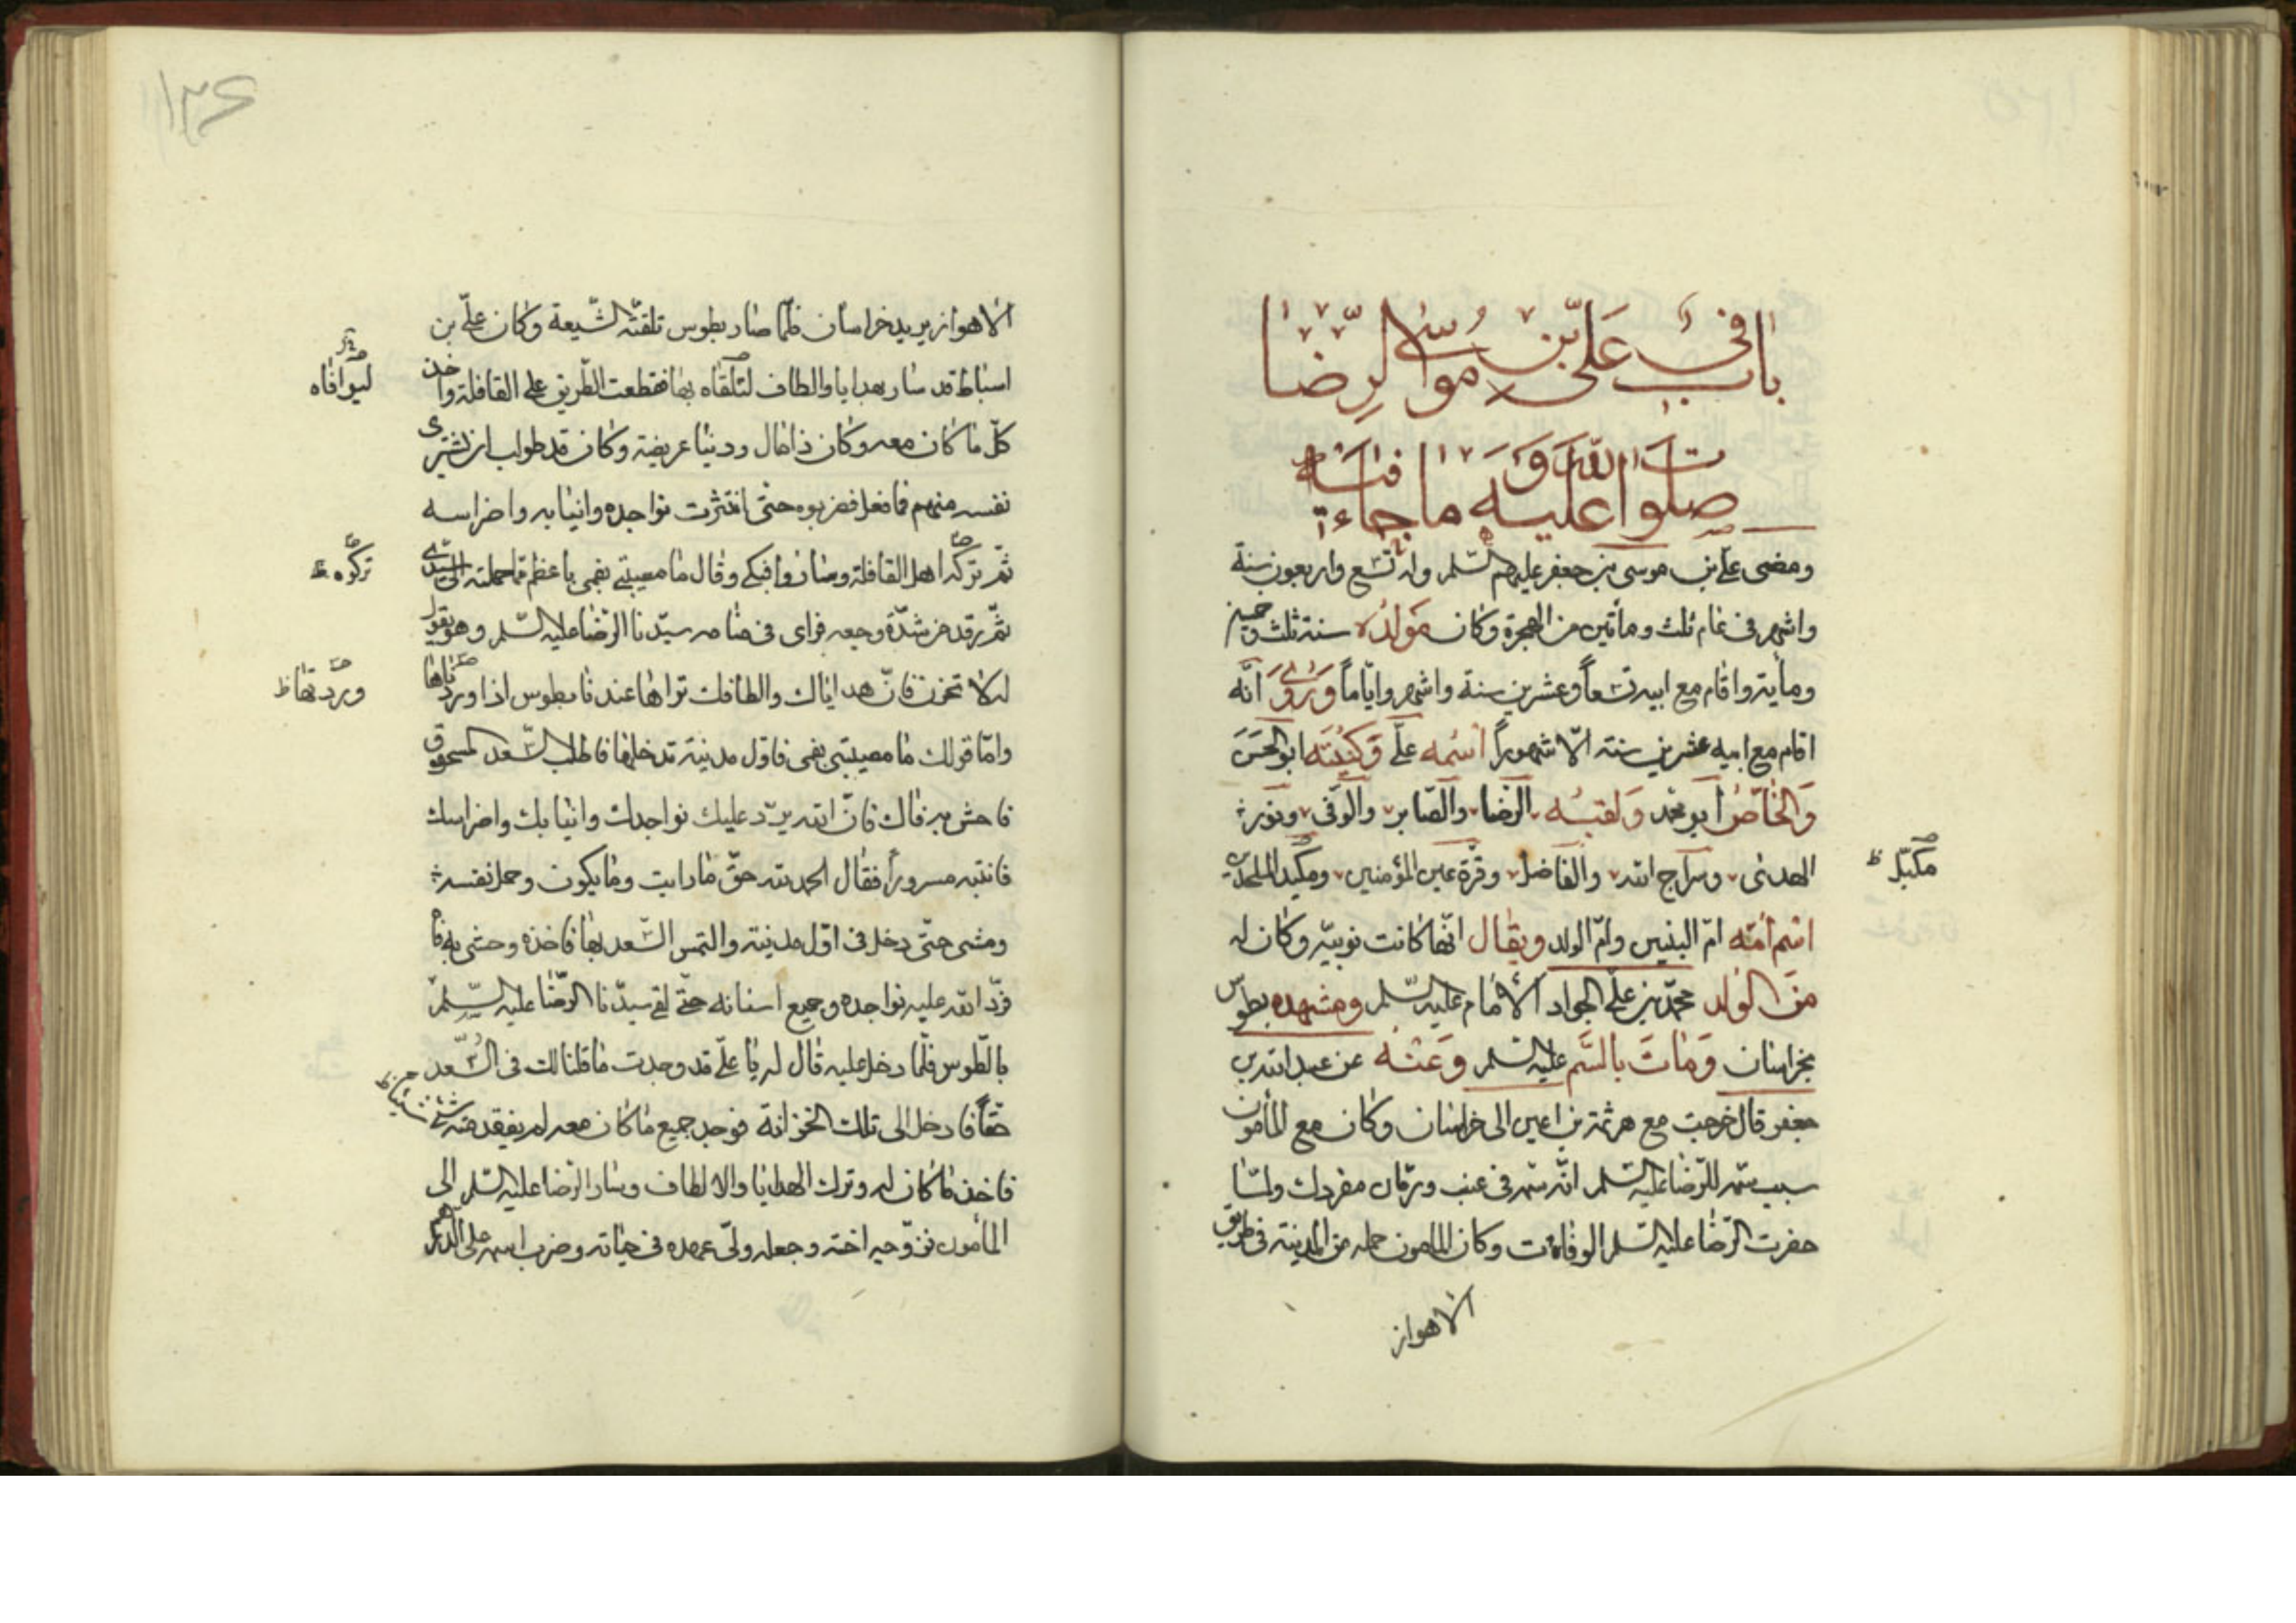 باب في علي بن موسى الرضا
صلوات الله عليه وما جاء فيه
ومضى علي بن موسى بن جعفر عليهم السلم وله تسع واربعون سنة
واشهر في عام ثلث ومأتين من الهجرة وكان مولده سنة ثلث وخمسين
ومأية واقام مع ابيه تسعاً وعشرين سنة واشهر واياماً وروى انه
اقام مع ابيه عشرين سنة الا شهوراً اسمه علي وكنيته ابو الحسن
والخاص أبو محمد ولقبه الرضا والصابر والوفي ونور
الهدى وسراج الله والفاضل وقرة عين المؤمنين ومكيد الملحدين
اسم امه ام البنين وام الولد ويقال انها كانت نوبية وكان له
من الولد محمد بن علي الجواد الامام عليه السلم ومشهده بطوس
بخراسان ومات بالسم عليه السلم وعنه عن عبد الله بن
جعفر قال خرجت مع هرثمة بن اعين الى خراسان وكان مع المأمون
سبب سم للرضا عليه السلم انه سم في عنب ورمان مفردك ولما
حضرت الرضا عليه السلم الوفاة وكان المامون حمله من المدينة في طريق
الاهواز
مكبل ظ
١٣٦
الاهواز يريد خراسان فلما صار بطوس تلقته الشيعة وكان علي بن
اسباط قد سار بهدايا والطاف لتلقاه بها فقطعت الطريق على القافلة واخذ
كل ما كان معه وكان ذا مال ودنيا عريضة وكان قد طولب ان يشتري
نفسه منهم فما فعل فضربوه حتى انتثرت نواجده وانيابه واضراسه
ثم تركه اهل القافلة وساروا فبكى وقال ما مصيبتي بفمي باعظم مما حملته الى سيدي
ثم رقد من شدة وجعه فراى في منامه سيدنا الرضا عليه السلم وهو يقول
له لا تحزن فان هداياك والطافك تراها عندنا بطوس اذا وردناها
واما قولك ما مصيبتي بفمي فاول مدينة تدخلها فاطلب السعد المسحوق
فاحش به فاك فان الله يرد عليك نواجدك وانيابك واضراسك
فانتبه مسروراً فقال الحمد لله حق ما رايت وما يكون وحمل نفسه
ومشى حتى دخل في اول مدينة والتمس السعد بها فاخذه وحشى به فاه
فرد الله عليه نواجده وجميع اسنانه حتى لقي سيدنا الرضا عليه السلم
بالطوس فلما دخل عليه قال له يا علي قد وجدت ما قلنا لك في السعد
حقاً فادخل الى تلك الخزانة فوجد جميع ما كان معه لم يفقد منه شئ
فاخذ ما كان له وترك الهدايا والالطاف وسار الرضا عليه السلم الى
المأمون فزوجه اخته وجعله ولي عهده في حياته وضرب اسمه على الدراهم
ليوافاه
تركوه
وردتها ظ